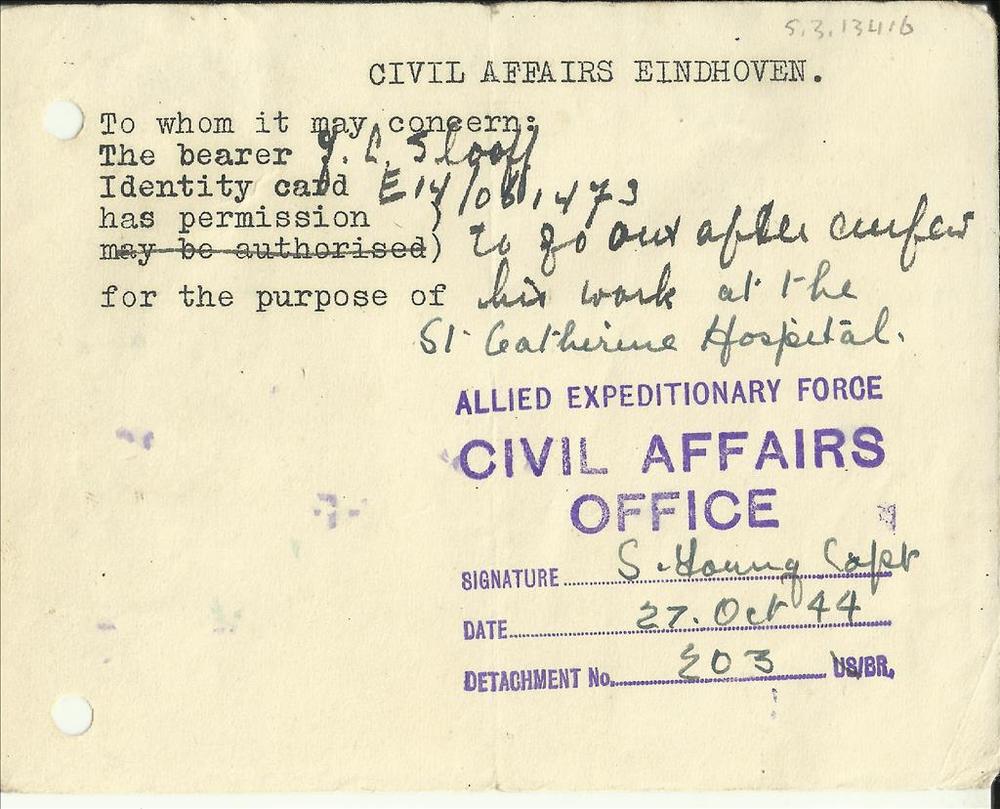 5.3.13416
CIVIL AFFAIRS EINDHOVEN.
To whom it may concern:
The bearer J. C. Slooff
Identity card E14/081473
has permission )
may be authorised) to go out after curfew
for the purpose of his work at the
St Catherine Hospital.
ALLIED EXPEDITIONARY FORCE
CIVIL AFFAIRS
OFFICE
SIGNATURE S. Young Capt
DATE 27. Oct 44
DETACHMENT No. 203 US/BR.